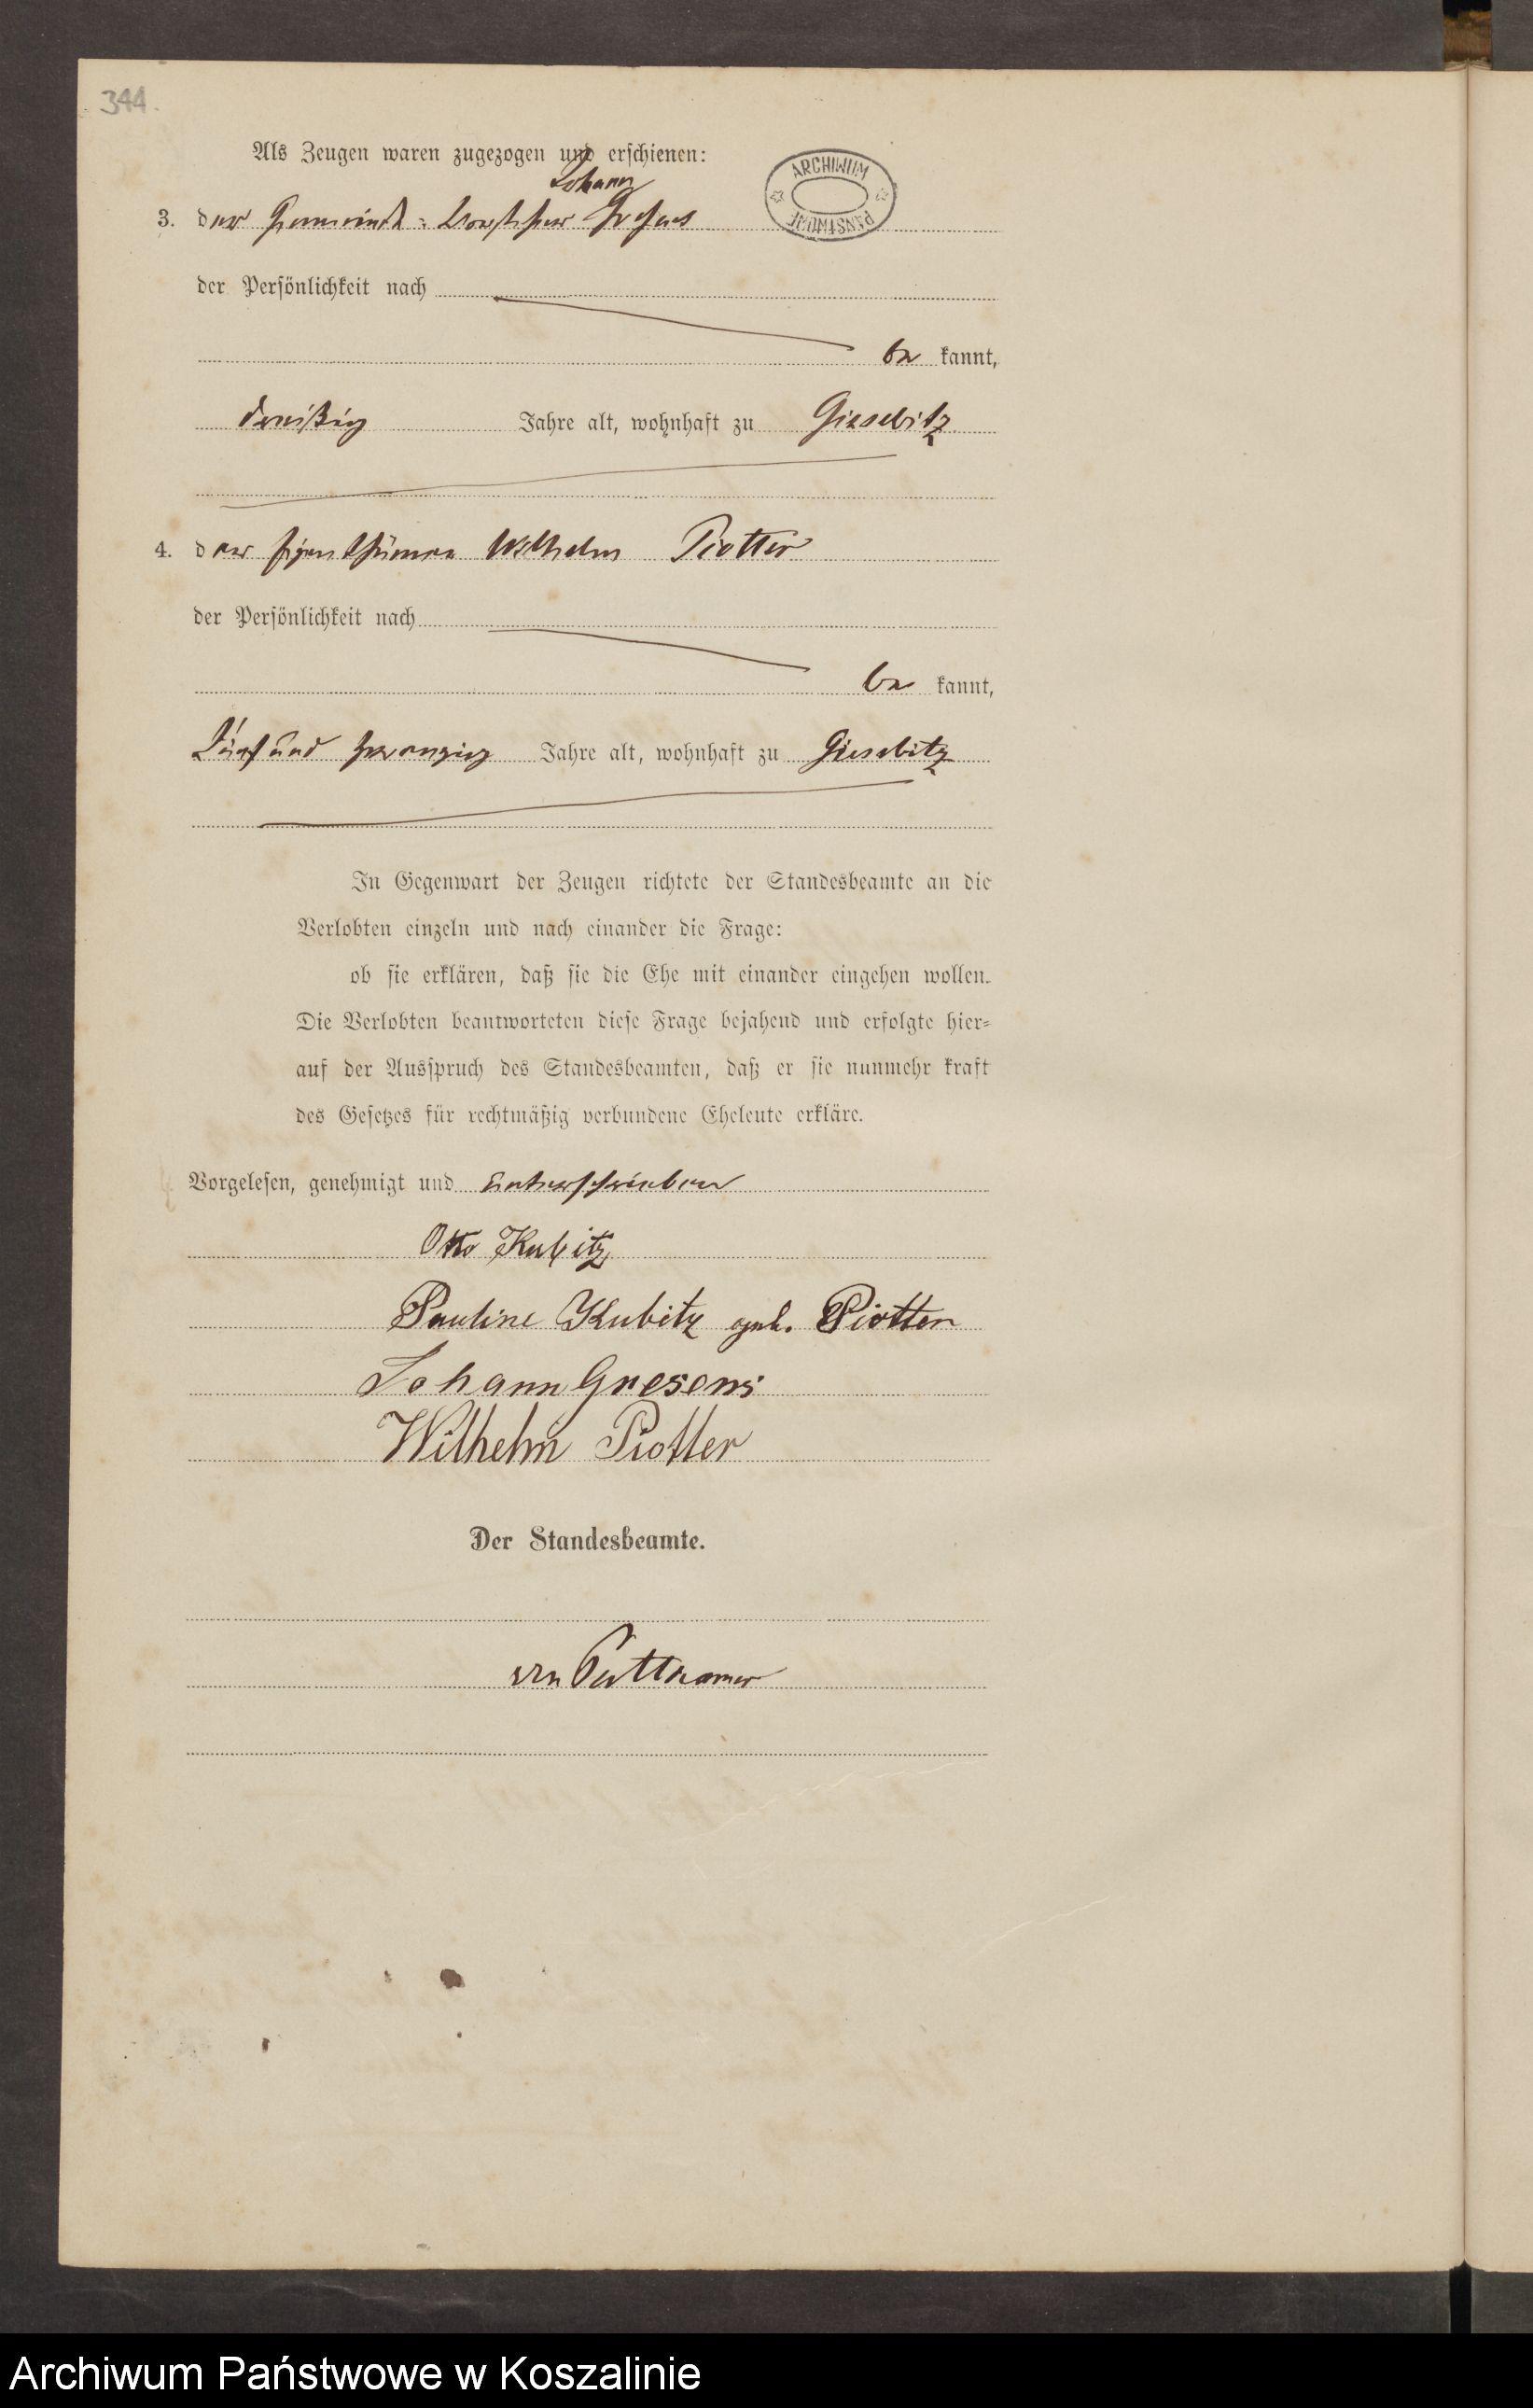 344.
Als Zeugen waren zugezogen und erschienen:
Johann
3. der Gemeinde-Vorsteher Gresens
ARCHIWUM PAŃSTWOWE
der Persönlichkeit nach
be kannt,
dreißig Jahre alt, wohnhaft zu Giesebitz
4. der Eigenthümer Wilhelm Piotter
der Persönlichkeit nach
be kannt,
fünf und zwanzig Jahre alt, wohnhaft zu Giesebitz
In Gegenwart der Zeugen richtete der Standesbeamte an die
Verlobten einzeln und nach einander die Frage:
ob sie erklären, daß sie die Ehe mit einander eingehen wollen.
Die Verlobten beantworteten diese Frage bejahend und erfolgte hier-
auf der Ausspruch des Standesbeamten, daß er sie nunmehr kraft
des Gesetzes für rechtmäßig verbundene Eheleute erkläre.
Vorgelesen, genehmigt und unterschrieben
Otto Kubitz
Pauline Kubitz geb. Piotter
Johann Gresens
Wilhelm Piotter
Der Standesbeamte.
von Puttkamer
Archiwum Państwowe w Koszalinie